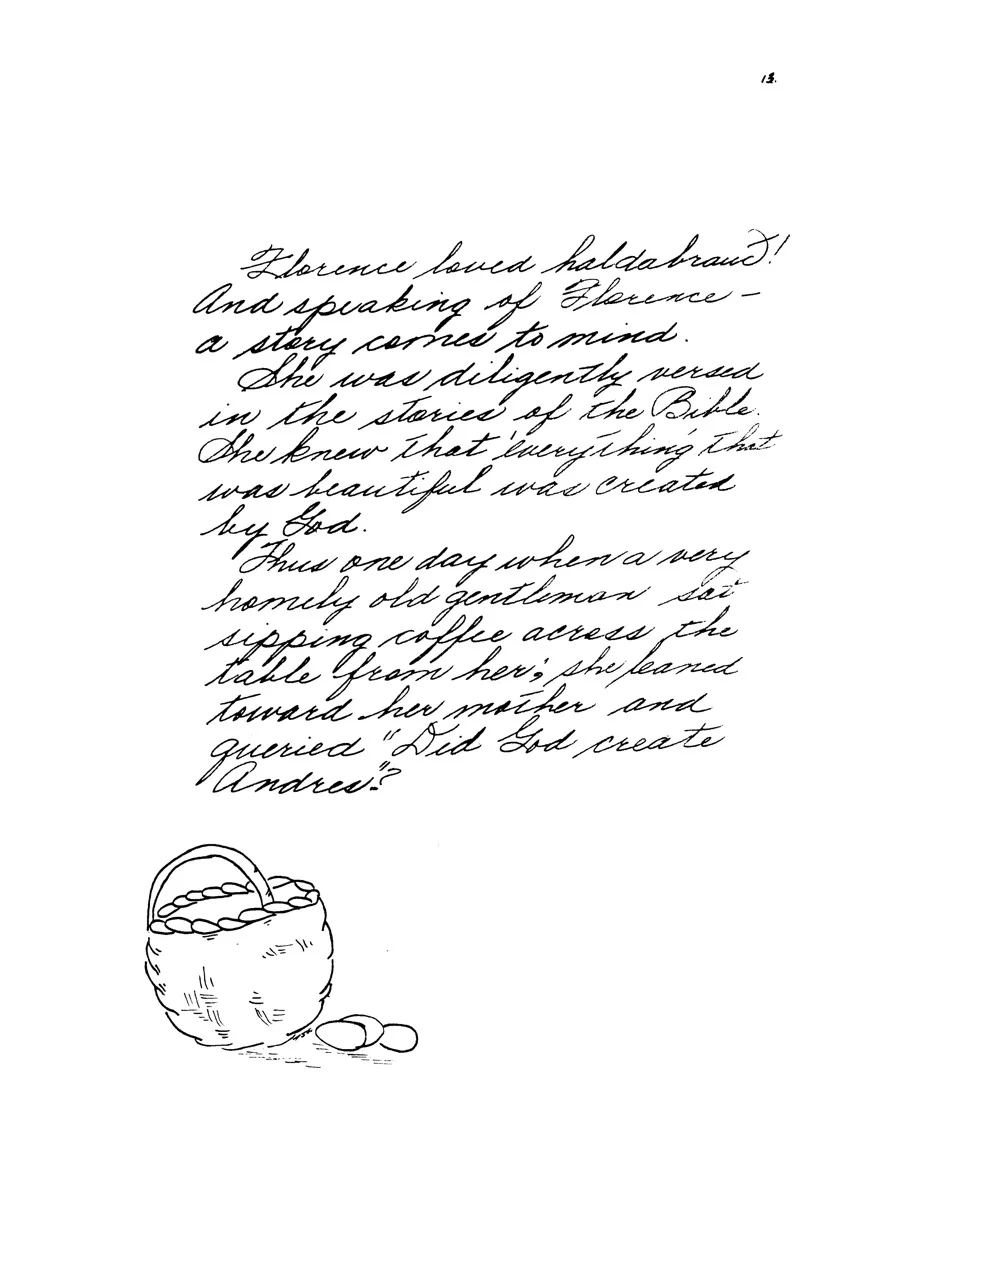 Florence loved haldabraud!
And speaking of Florence –
a story comes to mind.
She was diligently versed
in the stories of the Bible.
She knew that 'everything' that
was beautiful was created
by God.
Thus one day when a very
homely old gentleman sat
sipping coffee across the
table from her; she leaned
toward her mother and
queried "Did God create
Andres"?